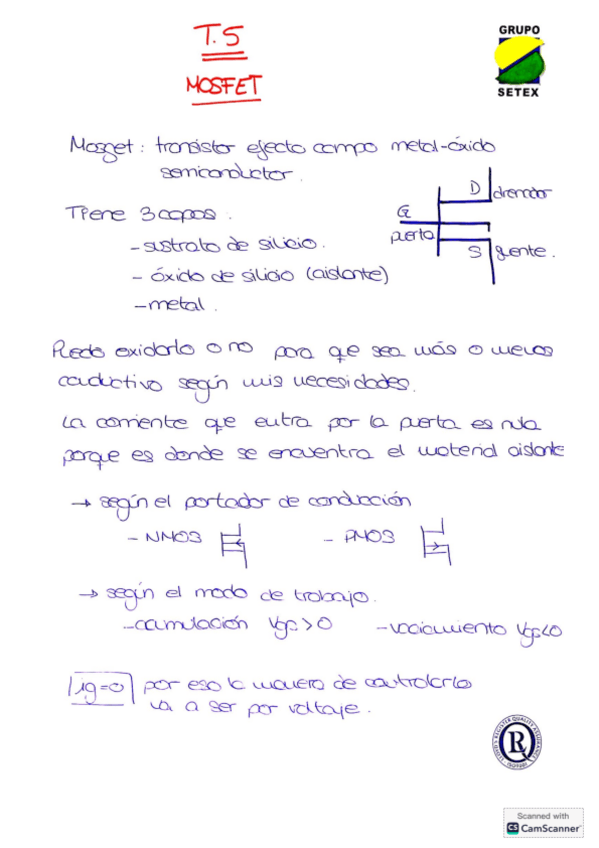 T.5
MOSFET
GRUPO
SETEX
Mosfet: transistor efecto campo metal-óxido
semiconductor.
D drenador
G
puerta
S fuente.
Tiene 3 capas.
- sustrato de silicio.
- óxido de silicio (aislante)
- metal.
Puedo oxidarlo o no para que sea más o menos
conductivo según mis necesidades.
La corriente que entra por la puerta es nula
porque es donde se encuentra el material aislante
→ según el portador de conducción
- NMOS
- PMOS
→ según el modo de trabajo.
- acumulación Vgs>0
- vaciamiento Vgs<0
ig=0 por eso la manera de controlarlo
va a ser por voltaje.
LLOYD'S REGISTER QUALITY ASSURANCE
ISO9001
Scanned with
CS CamScanner